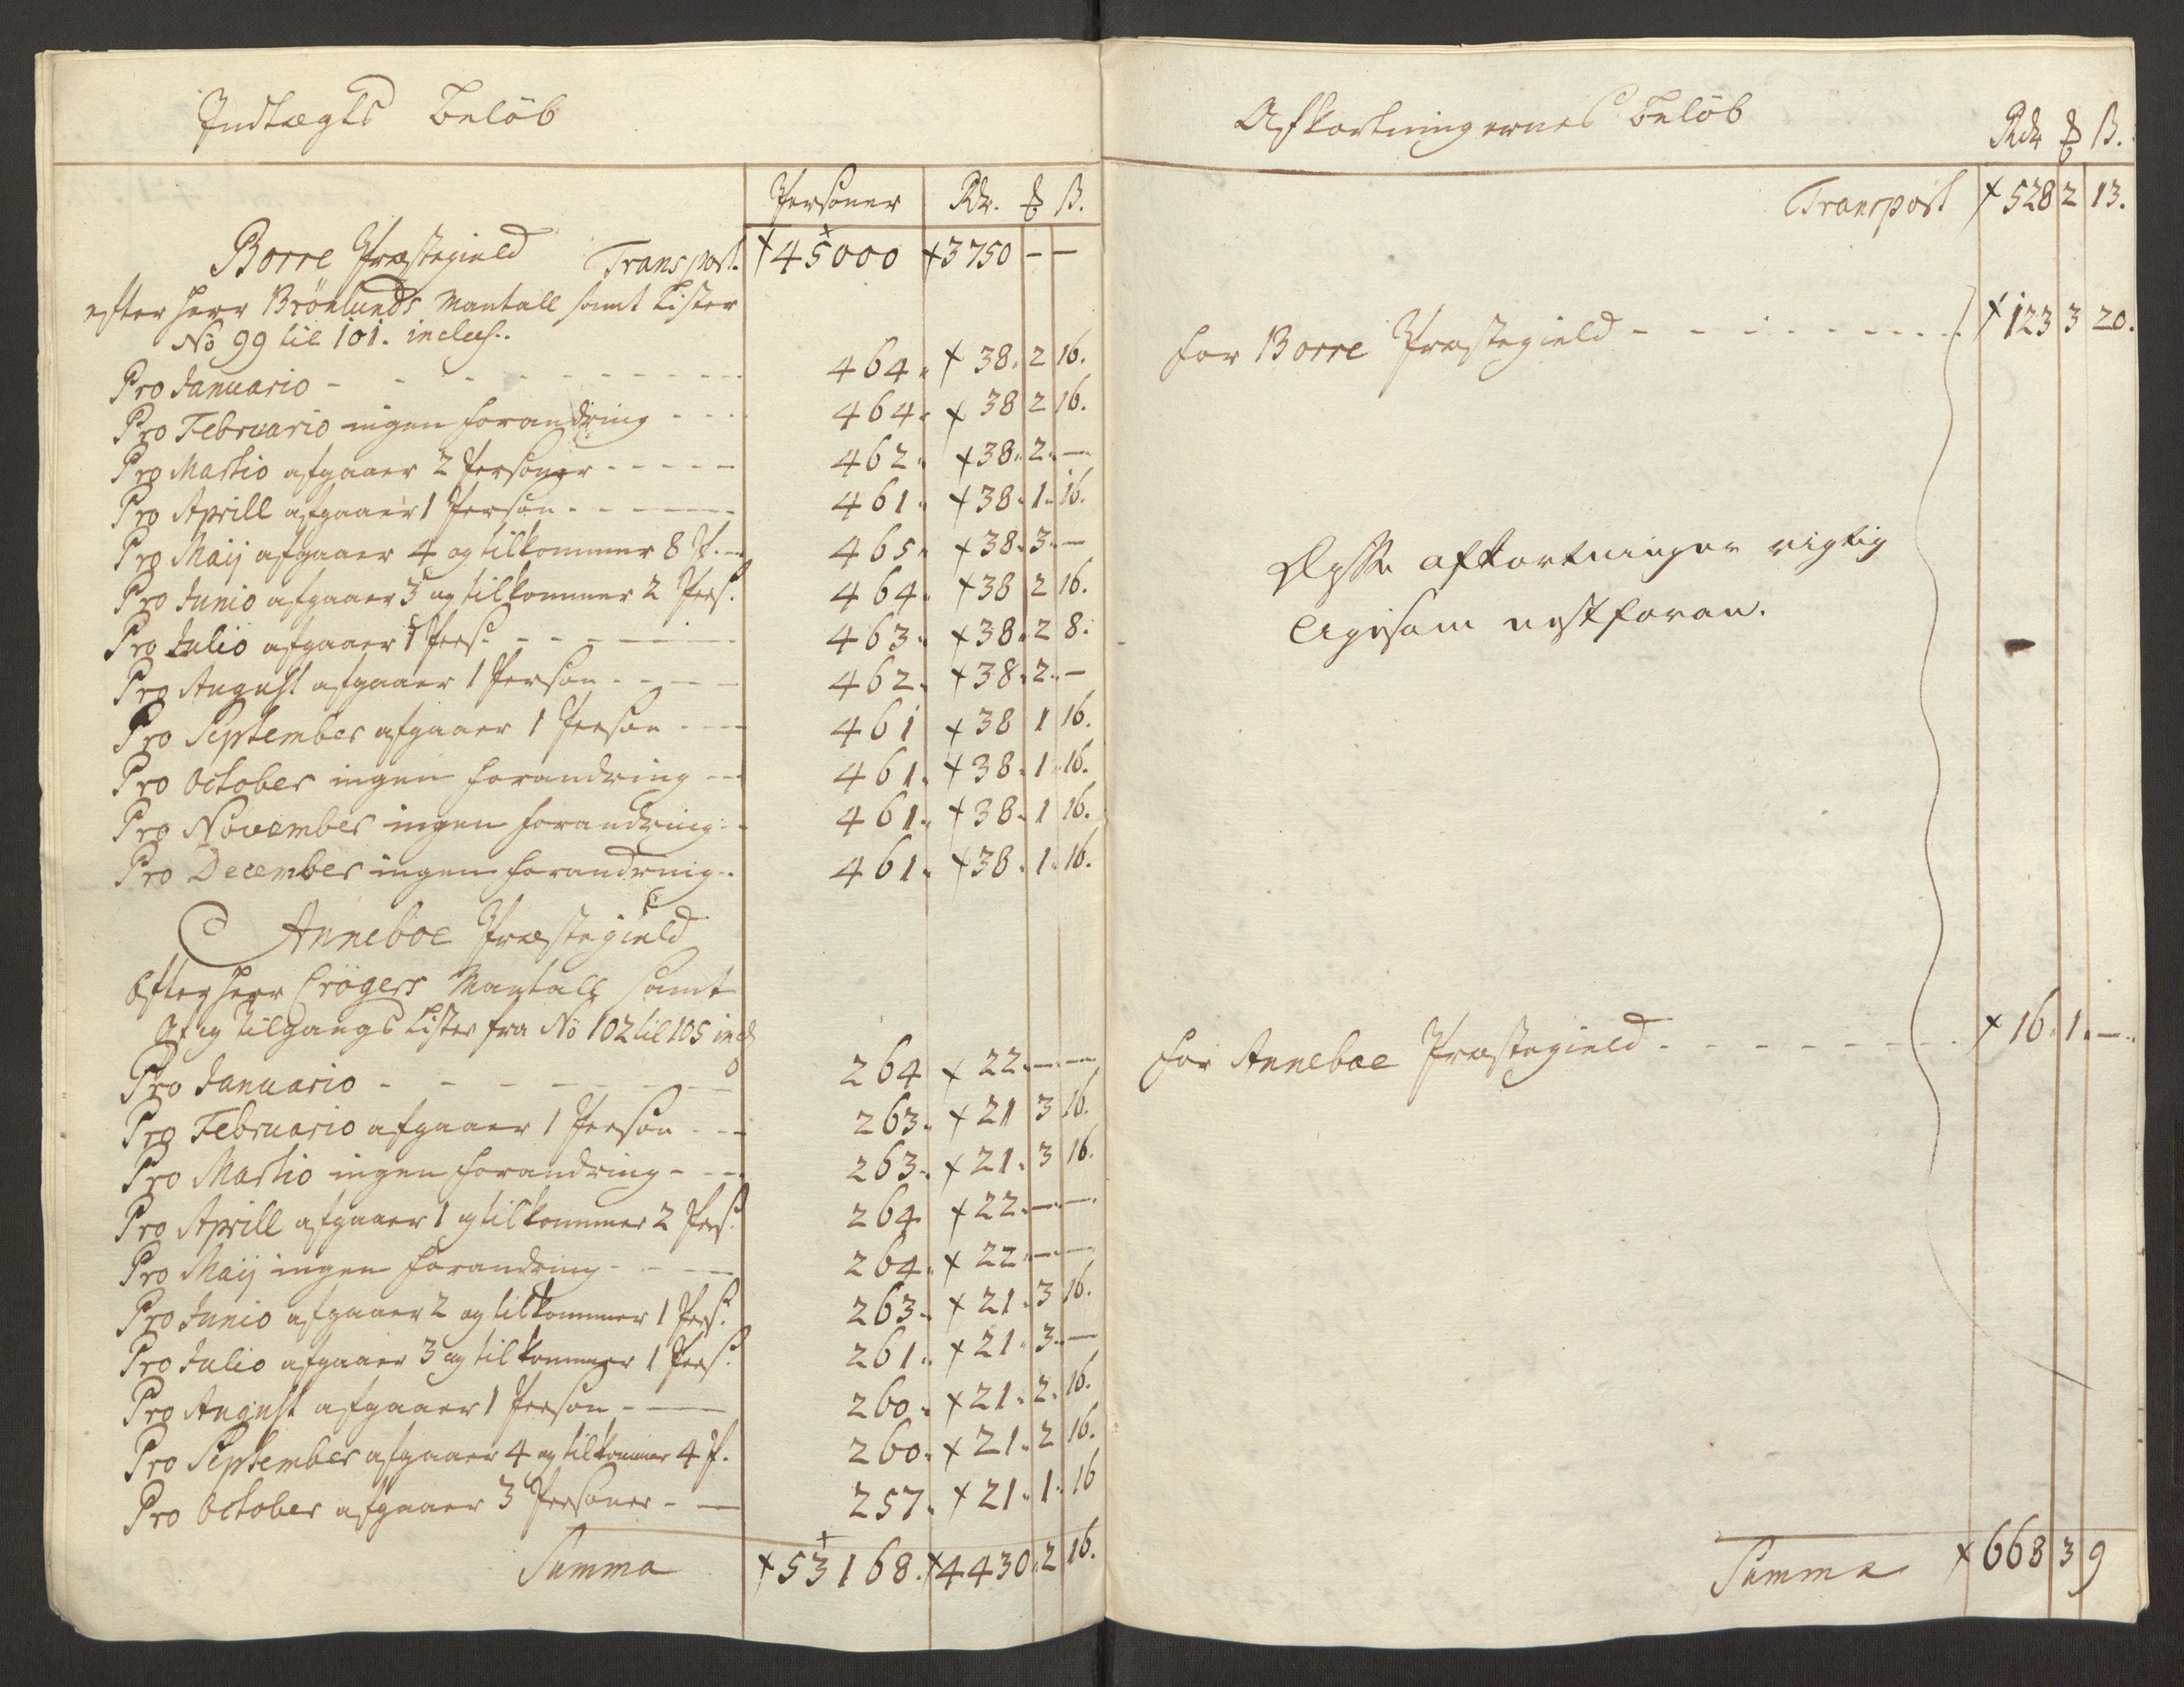 Indtægts Beløb
Personer Rdr. ₰ ß.
Borre Præstegield Transport. 45000 3750 — —
efter Herr Brönlunds Mantall samt Lister
No 99 til 101. inclus:.
Pro Januario - - - 464. 38. 2 16.
Pro Februario ingen forandring - - - 464. 38 2 16.
Pro Martio afgaaer 2 Personer - - - 462. 38. 2. —
Pro Aprill afgaaer 1 Person - - - 461. 38. 1. 16.
Pro Maij afgaaer 4 og tilkommer 8 P. - 465. 38. 3. —
Pro Junio afgaaer 3 og tilkommer 2 Pers. 464. 38 2 16.
Pro Julio afgaaer 1 Pers. - - - 463. 38. 2 8.
Pro August afgaaer 1 Person - - - 462. 38. 2. —
Pro September afgaaer 1 Person - - - 461 38 1 16.
Pro October ingen forandring - - 461. 38. 1. 16.
Pro November ingen forandring - - 461. 38. 1 16.
Pro December ingen forandring - 461. 38. 1. 16.
Anneboe Præstegield
Efter Herr Crögers Mantall samt
Af og Tilgangs Lister fra No 102 til 105 incl
Pro Januario - - - 264 22. — —
Pro Februario afgaaer 1 Person - - - 263. 21 3 16.
Pro Martio ingen forandring - - - 263. 21. 3 16.
Pro Aprill afgaaer 1 og tilkommer 2 Pers. 264 22. — —
Pro Maij ingen forandring - - - 264. 22 — —
Pro Junio afgaaer 2 og tilkommer 1 Pers. 263. 21. 3 16.
Pro Julio afgaaer 3 og tilkommer 1 Pers. 261. 21. 3. —
Pro August afgaaer 1 Person - - - 260. 21. 2. 16.
Pro September afgaaer 4 og tilkommer 4 P. 260. 21. 2 16.
Pro October afgaaer 3 Personer - - 257. 21. 1. 16
Summa 53168. 4430. 2 16.
Afkortningernes Beløb
Rdr ₰ ß.
Transport 528 2 13.
for Borre Præstegield - - - 123 3 20.
Disse afkortninger rigtig
ligesom nestforan.
for Anneboe Præstegield - - - 16. 1. —
Summa 668 3 9